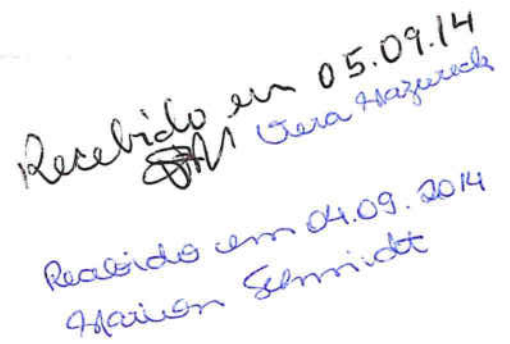 Recebido em 05.09.14
Vera Mazureck
Recebido em 04.09.2014
Marion Schmidt